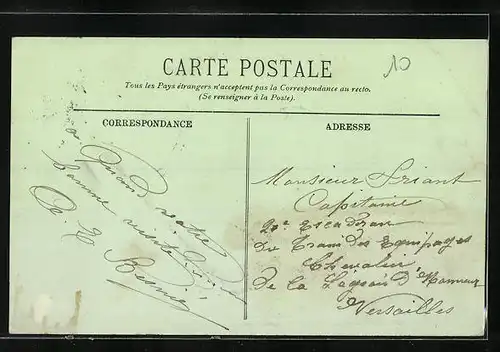 10
CARTE POSTALE
Tous les Pays étrangers n'acceptent pas la Correspondance au recto.
(Se renseigner à la Poste).
CORRESPONDANCE
ADRESSE
Quand votre
bonne visite
Monsieur Friant
Capitaine
20e Escadron
du Train des Equipages
Chevalier
de la Légion d'Honneur
Versailles